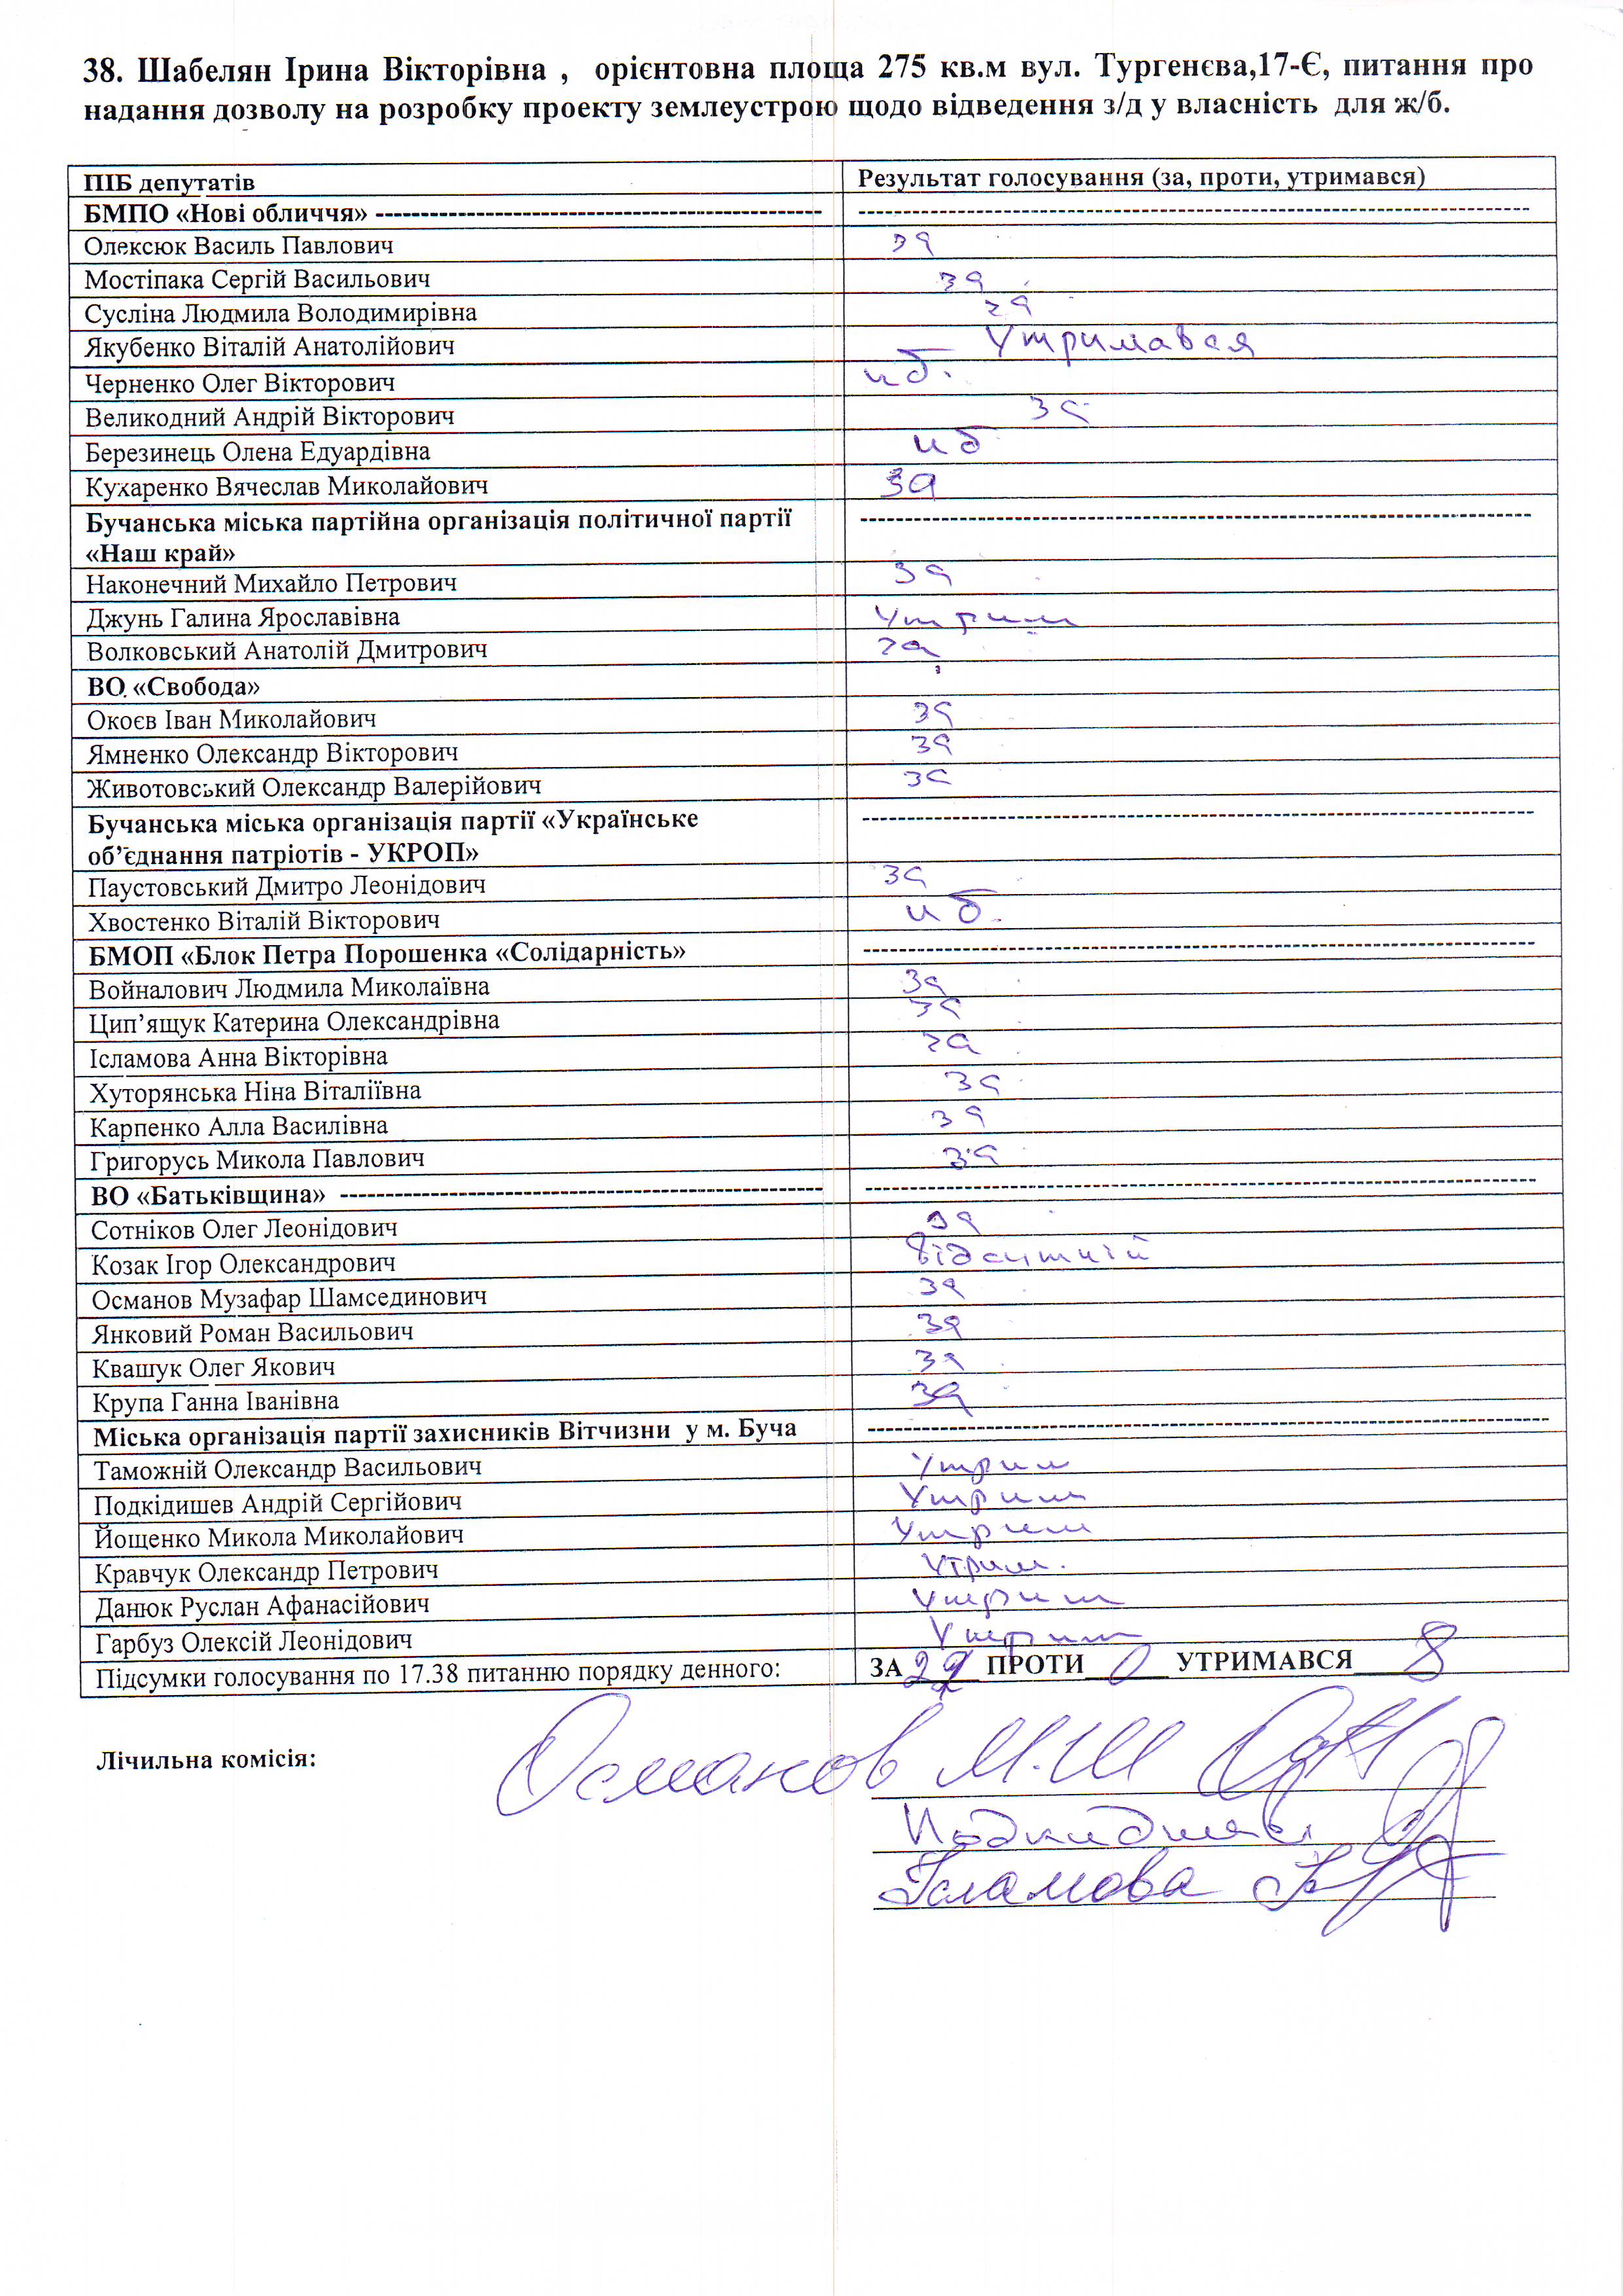 38. Шабелян Ірина Вікторівна , орієнтовна площа 275 кв.м вул. Тургенєва,17-Є, питання про
надання дозволу на розробку проекту землеустрою щодо відведення з/д у власність для ж/б.
ПІБ депутатів Результат голосування (за, проти, утримався)
БМПО «Нові обличчя» ------------------------------------------------- --------------------------------------------------------------------------
Олексюк Василь Павлович за
Мостіпака Сергій Васильович за
Сусліна Людмила Володимирівна за
Якубенко Віталій Анатолійович Утримався
Черненко Олег Вікторович нб.
Великодний Андрій Вікторович за
Березинець Олена Едуардівна нб
Кухаренко Вячеслав Миколайович за
Бучанська міська партійна організація політичної партії --------------------------------------------------------------------------
«Наш край»
Наконечний Михайло Петрович за
Джунь Галина Ярославівна Утрим
Волковський Анатолій Дмитрович за
ВО «Свобода»
Окоєв Іван Миколайович за
Ямненко Олександр Вікторович за
Животовський Олександр Валерійович за
Бучанська міська організація партії «Українське --------------------------------------------------------------------------
об’єднання патріотів - УКРОП»
Паустовський Дмитро Леонідович за
Хвостенко Віталій Вікторович нб.
БМОП «Блок Петра Порошенка «Солідарність» --------------------------------------------------------------------------
Войналович Людмила Миколаївна за
Цип’ящук Катерина Олександрівна за
Ісламова Анна Вікторівна за
Хуторянська Ніна Віталіївна за
Карпенко Алла Василівна за
Григорусь Микола Павлович за
ВО «Батьківщина» ----------------------------------------------------- --------------------------------------------------------------------------
Сотніков Олег Леонідович за
Козак Ігор Олександрович Відсутній
Османов Музафар Шамсединович за
Янковий Роман Васильович за
Квашук Олег Якович за
Крупа Ганна Іванівна за
Міська організація партії захисників Вітчизни у м. Буча ---------------------------------------------------------------------------
Таможній Олександр Васильович Утрим
Подкідишев Андрій Сергійович Утрим
Йощенко Микола Миколайович Утрим
Кравчук Олександр Петрович Утрим.
Данюк Руслан Афанасійович Утрим
Гарбуз Олексій Леонідович Утрим
Підсумки голосування по 17.38 питанню порядку денного: ЗА ПРОТИ 0 УТРИМАВСЯ 8
Лічильна комісія: Османов М.Ш
Ісламова